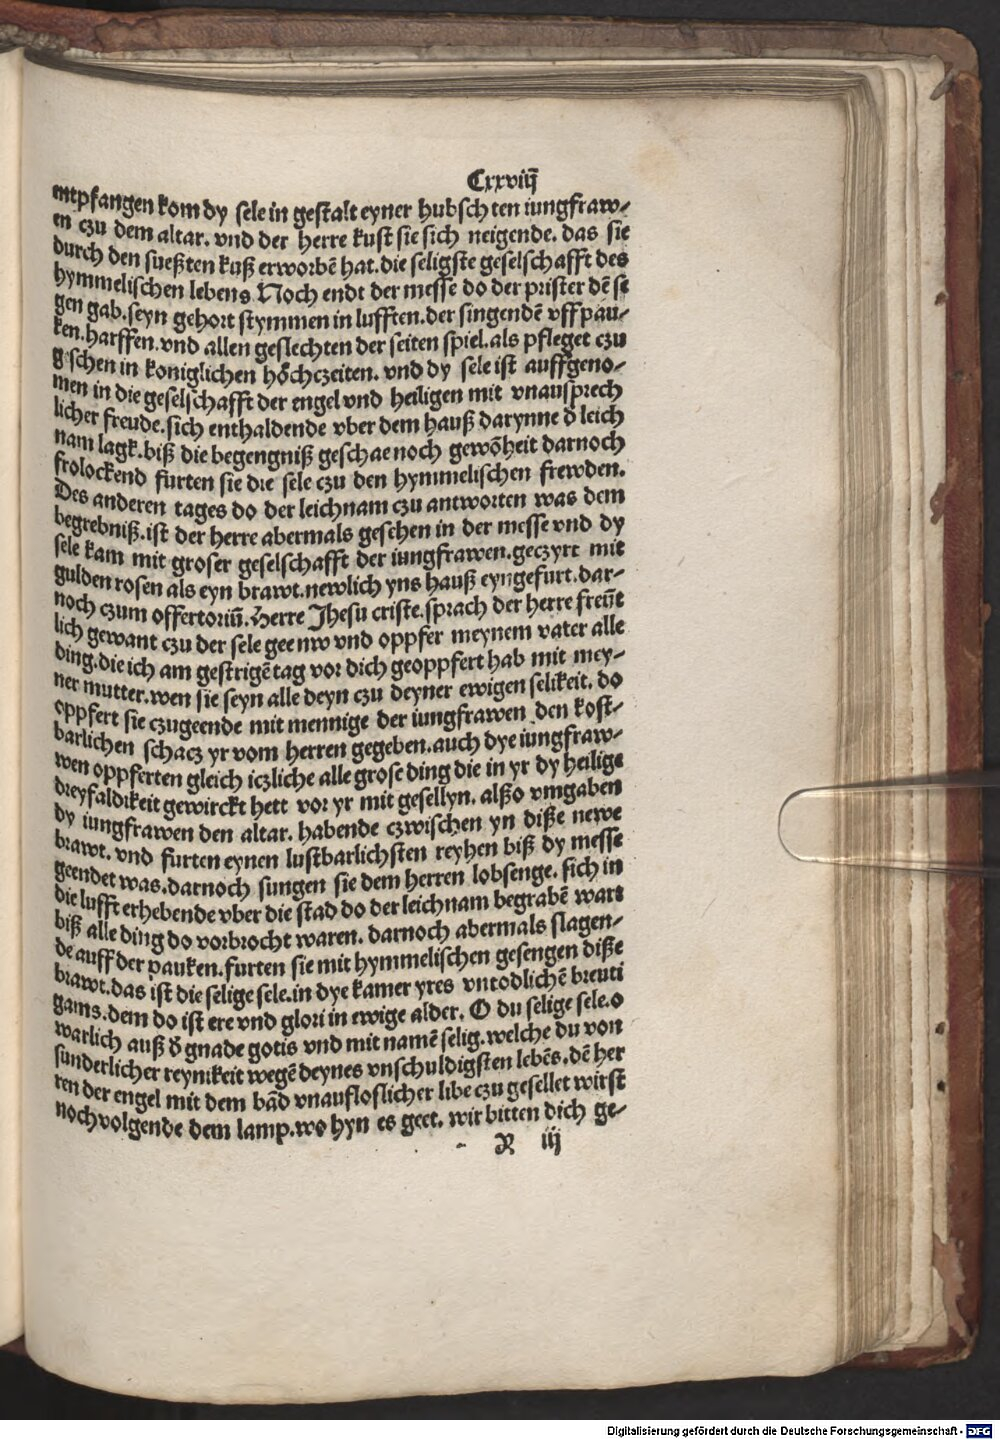 Cxxviij
entpfangen kom dy sele in gestalt eyner hubschten iungfraw⸗
en czu dem altar. vnd der herre kust sie sich neigende. das sie
durch den sueßten kuß erworbē hat. die seligste geselschafft des
hymmelischen lebens Noch endt der messe do der prister dē se
gen gab. seyn gehort stymmen in lufften. der singendē vff pau⸗
ken. harffen. vnd allen geslechten der seiten spiel. als pfleget czu
geschen in koniglichen hochczeiten. vnd dy sele ist auffgeno⸗
men in die geselschafft der engel vnd heiligen mit vnausprech
licher freude. sich enthaldende vber dem hauß darynne d̄ leich
nam lagk. biß die begengniß geschae noch gewōheit darnoch
frolockend furten sie die sele czu den hymmelischen frewden.
Des anderen tages do der leichnam czu antworten was dem
begrebniß. ist der herre abermals geschen in der messe vnd dy
sele kam mit groser geselschafft der iungfrawen. geczyrt mit
gulden rosen als eyn brawt. newlich yns hauß eyngefurt. dar⸗
noch czum offertoriū. Herre Jhesu criste. sprach der herre freūt
lich gewant czu der sele gee nw vnd oppfer meynem vater alle
ding. die ich am gestrigē tag vor dich geoppfert hab mit mey⸗
ner mutter. wen sie seyn alle deyn czu deyner ewigen selikeit. do
oppfert sie czugeende mit mennige der iungfrawen den kost⸗
barlichen schacz yr vom herren gegeben. auch dye iungfraw⸗
wen oppferten gleich iczliche alle grose ding die in yr dy heilige
dreyfaldikeit gewirckt hett vor yr mit gesellyn. alßo vmgaben
dy iungfrawen den altar. habende czwischen yn diße newe
brawt. vnd furten eynen lustbarlichsten reyhen biß dy messe
geendet was. darnoch sungen sie dem herren lobsenge. sich in
die lufft erhebende vber die stad do der leichnam begrabē wart
biß alle ding do vorbrocht waren. darnoch abermals slagen⸗
de auff der pauken. furten sie mit hymmelischen gesengen diße
brawt. das ist die selige sele. in dye kamer yres vntodlichē breuti
gams. dem do ist ere vnd glori in ewige alder. O du selige sele. o
warlich auß d̄ gnade gotis vnd mit namē selig. welche du von
sunderlicher reynikeit wegē deynes vnschuldigsten lebēs. dē her
ren der engel mit dem bād vnaufloslicher libe czu gesellet wirst
nochvolgende dem lamp. wo hyn es geet. wir bitten dich ge⸗
R iij
Digitalisierung gefördert durch die Deutsche Forschungsgemeinschaft - DFG